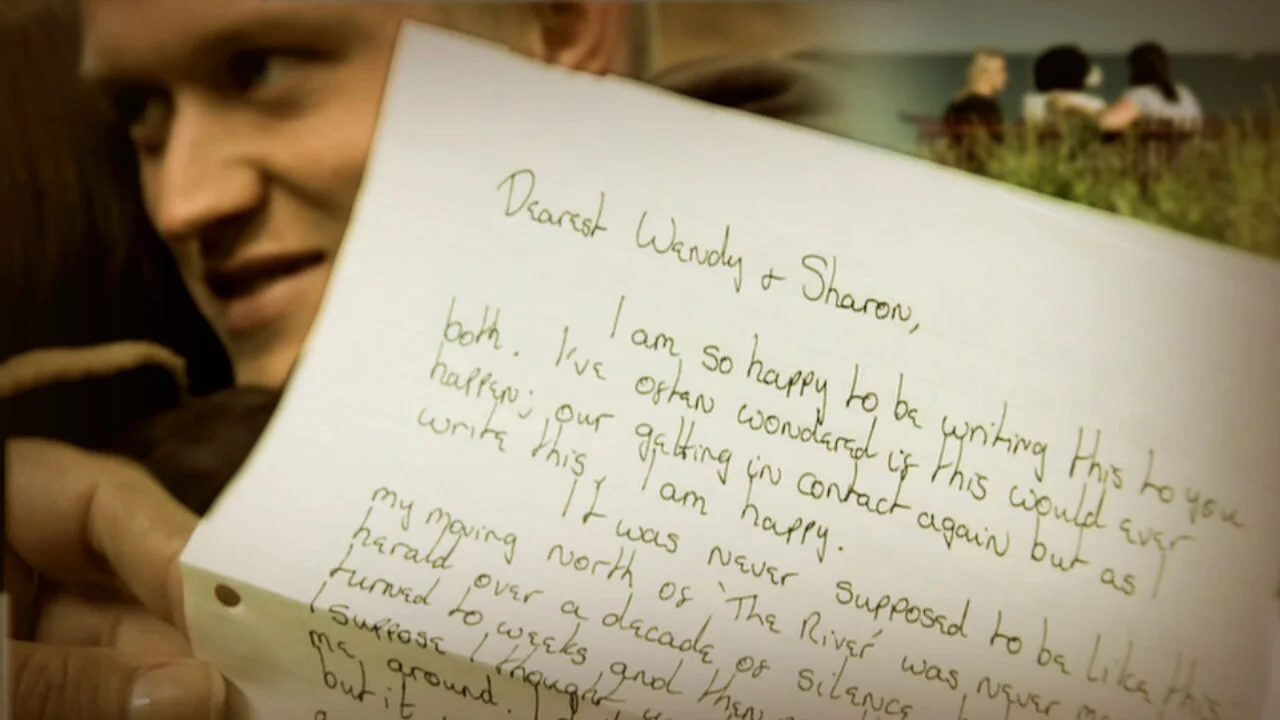 Dearest Wendy + Sharon,
I am so happy to be writing this to you
both. I've often wondered if this would ever
happen; our getting in contact again but as I
write this, I am happy.
It was never supposed to be like this.
my moving north of 'The River' was never
herald over a decade of silence,
turned to weeks and then
I suppose I thought
me around.
but it